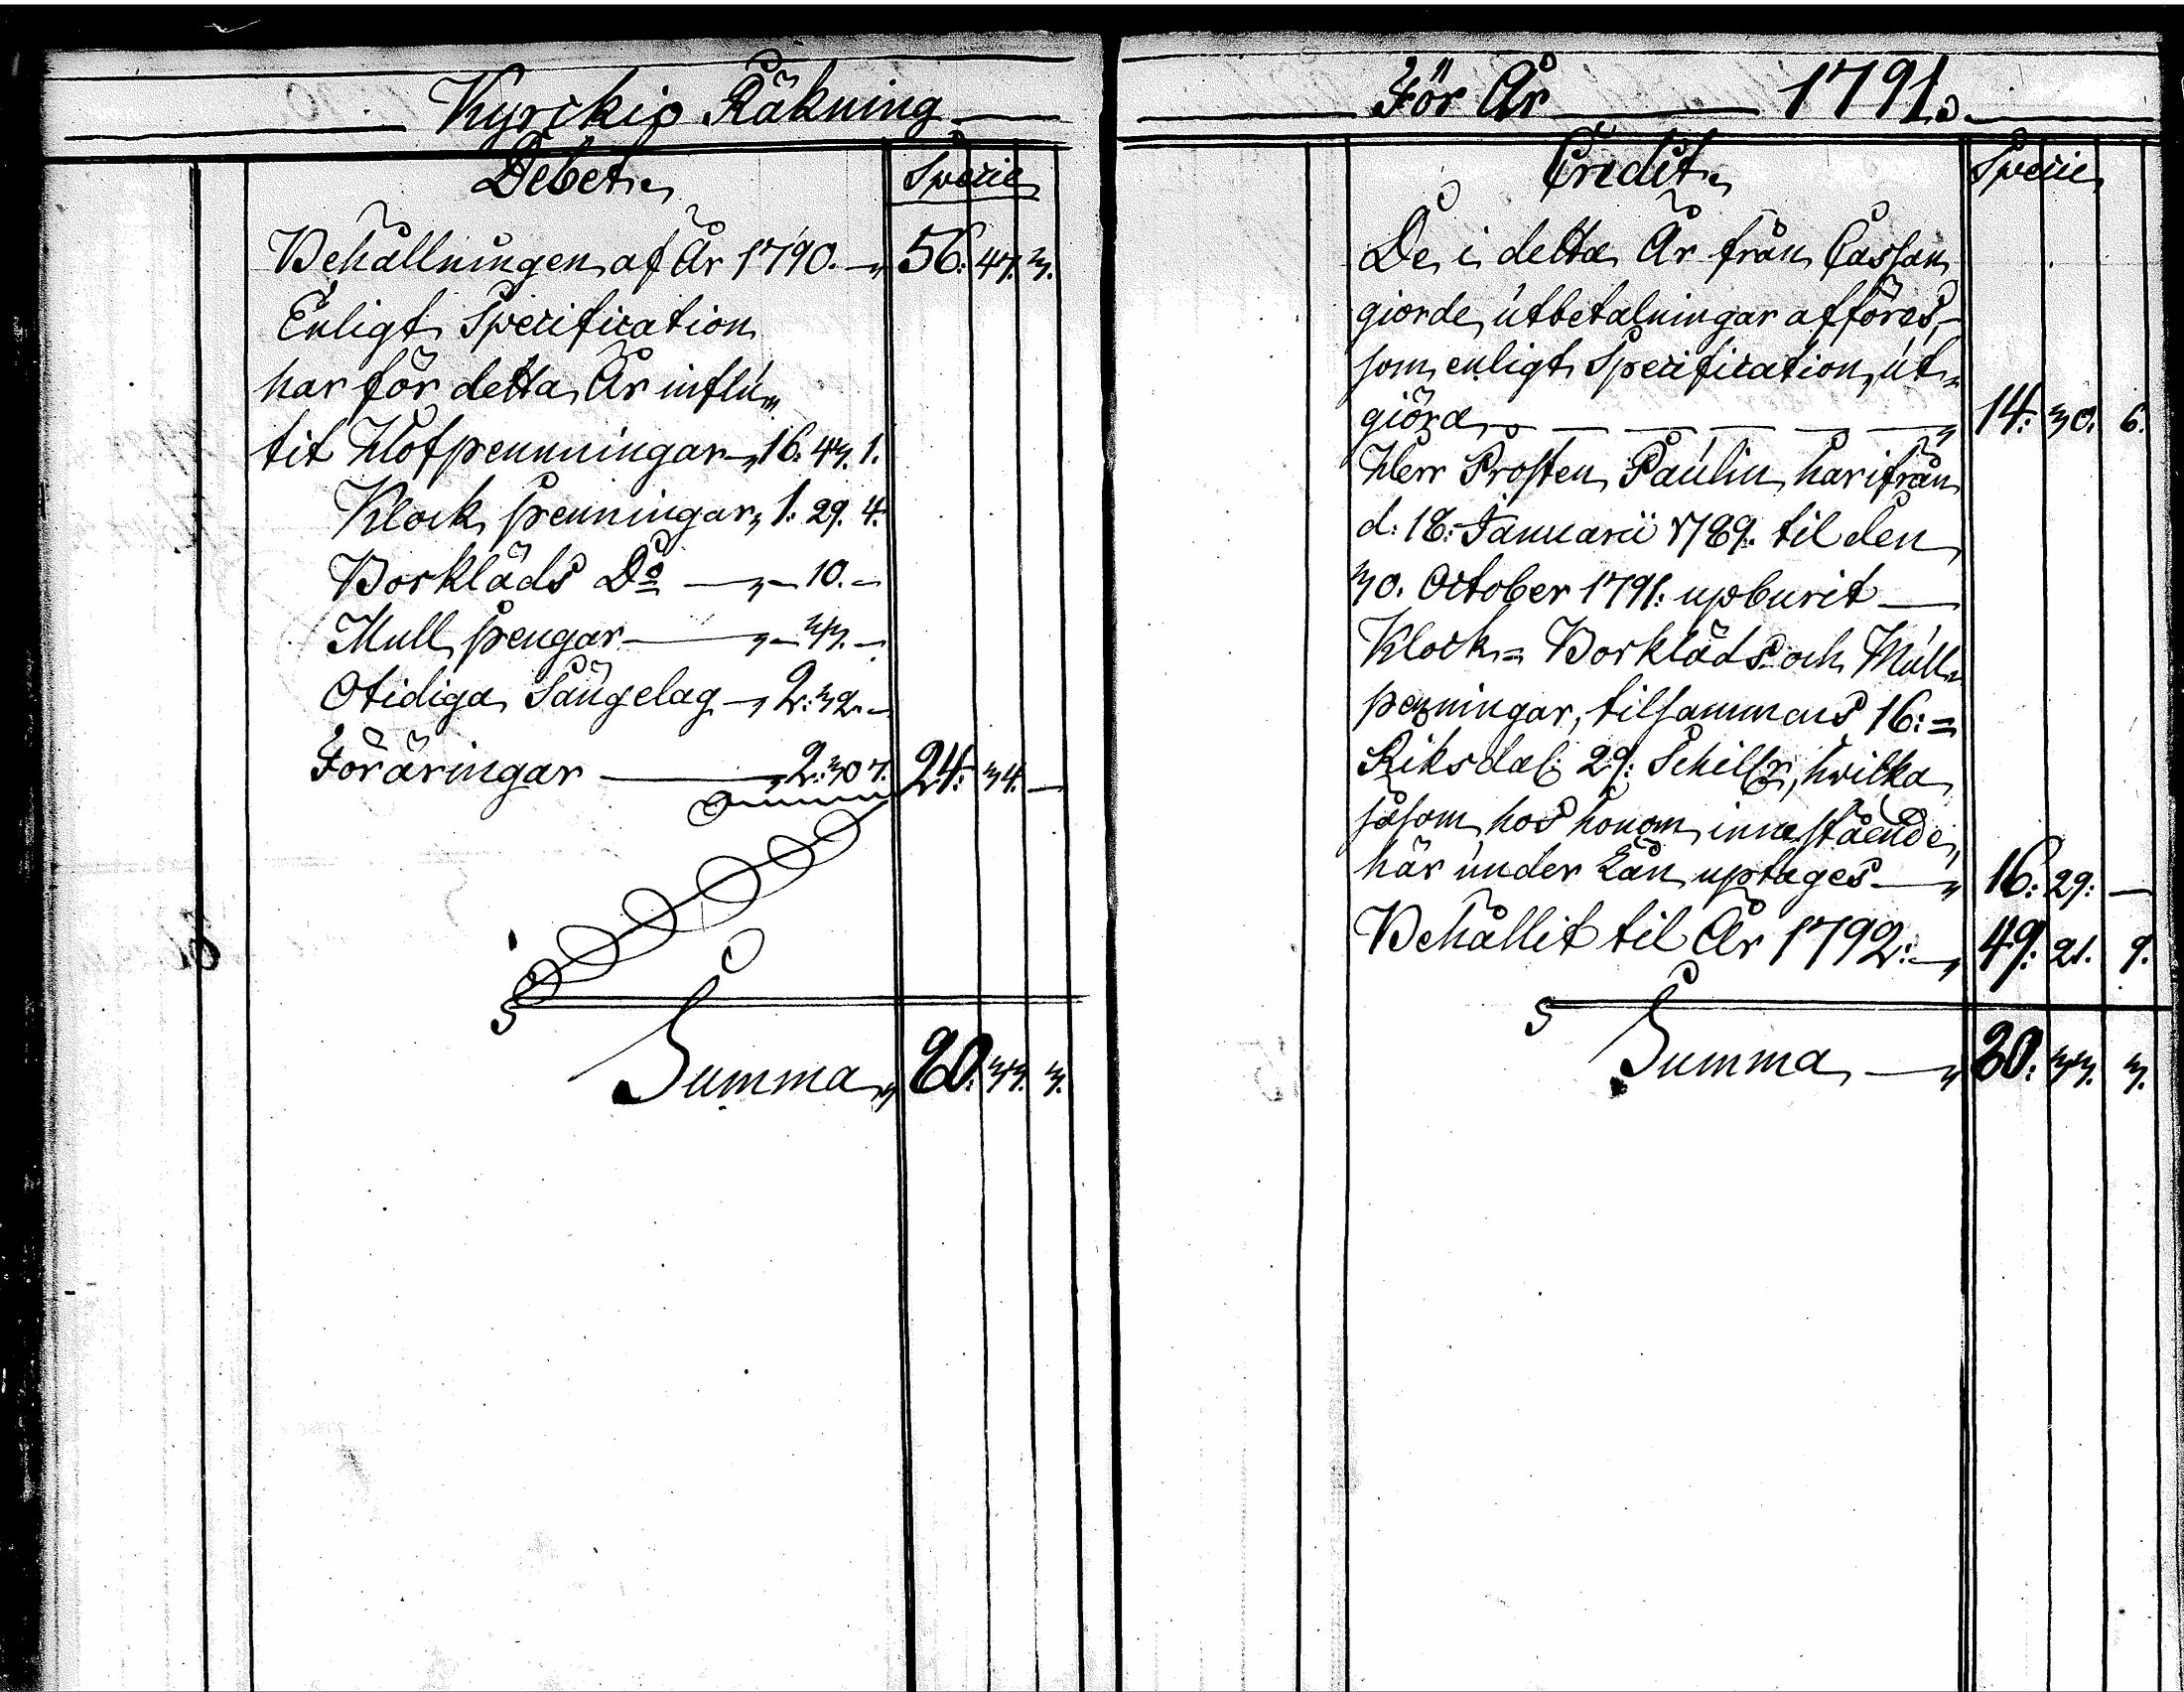 Kyrckio Räkning
Debet. Specie
Behållningen af År 1790. 56: 47. 3.
Enligt Specification
har för detta År influ„
tit Hofpenningar 16: 43. 1.
Klock penningar 1: 29. 4.
Borkläds Do — 10. –
Mull pengar — 33. –
Otidiga Sängelag 2: 32. –
Föräringar 2: 30 7. 24: 34. —
Summa 80: 33. 3.
För År 1791.
Credit. Specie
De i detta År från Cassan
giorde utbetalningar afföres,
som enligt Specification, ut„
giöra — — — — — 14: 30. 6.
Herr Prosten Paulin har ifrån
d: 18: Januarii 1789: til den
30. October 1791: upburit —
Klock= Borkläds och Mull
penningar, tilsammans 16: =
Riksdal: 29: Schillr, hvilka
såsom hos honom innestående,
här under Lån uptages — 16: 29: —
Behållit til År 1792: — 49: 21. 9.
Summa — 80: 33. 3.